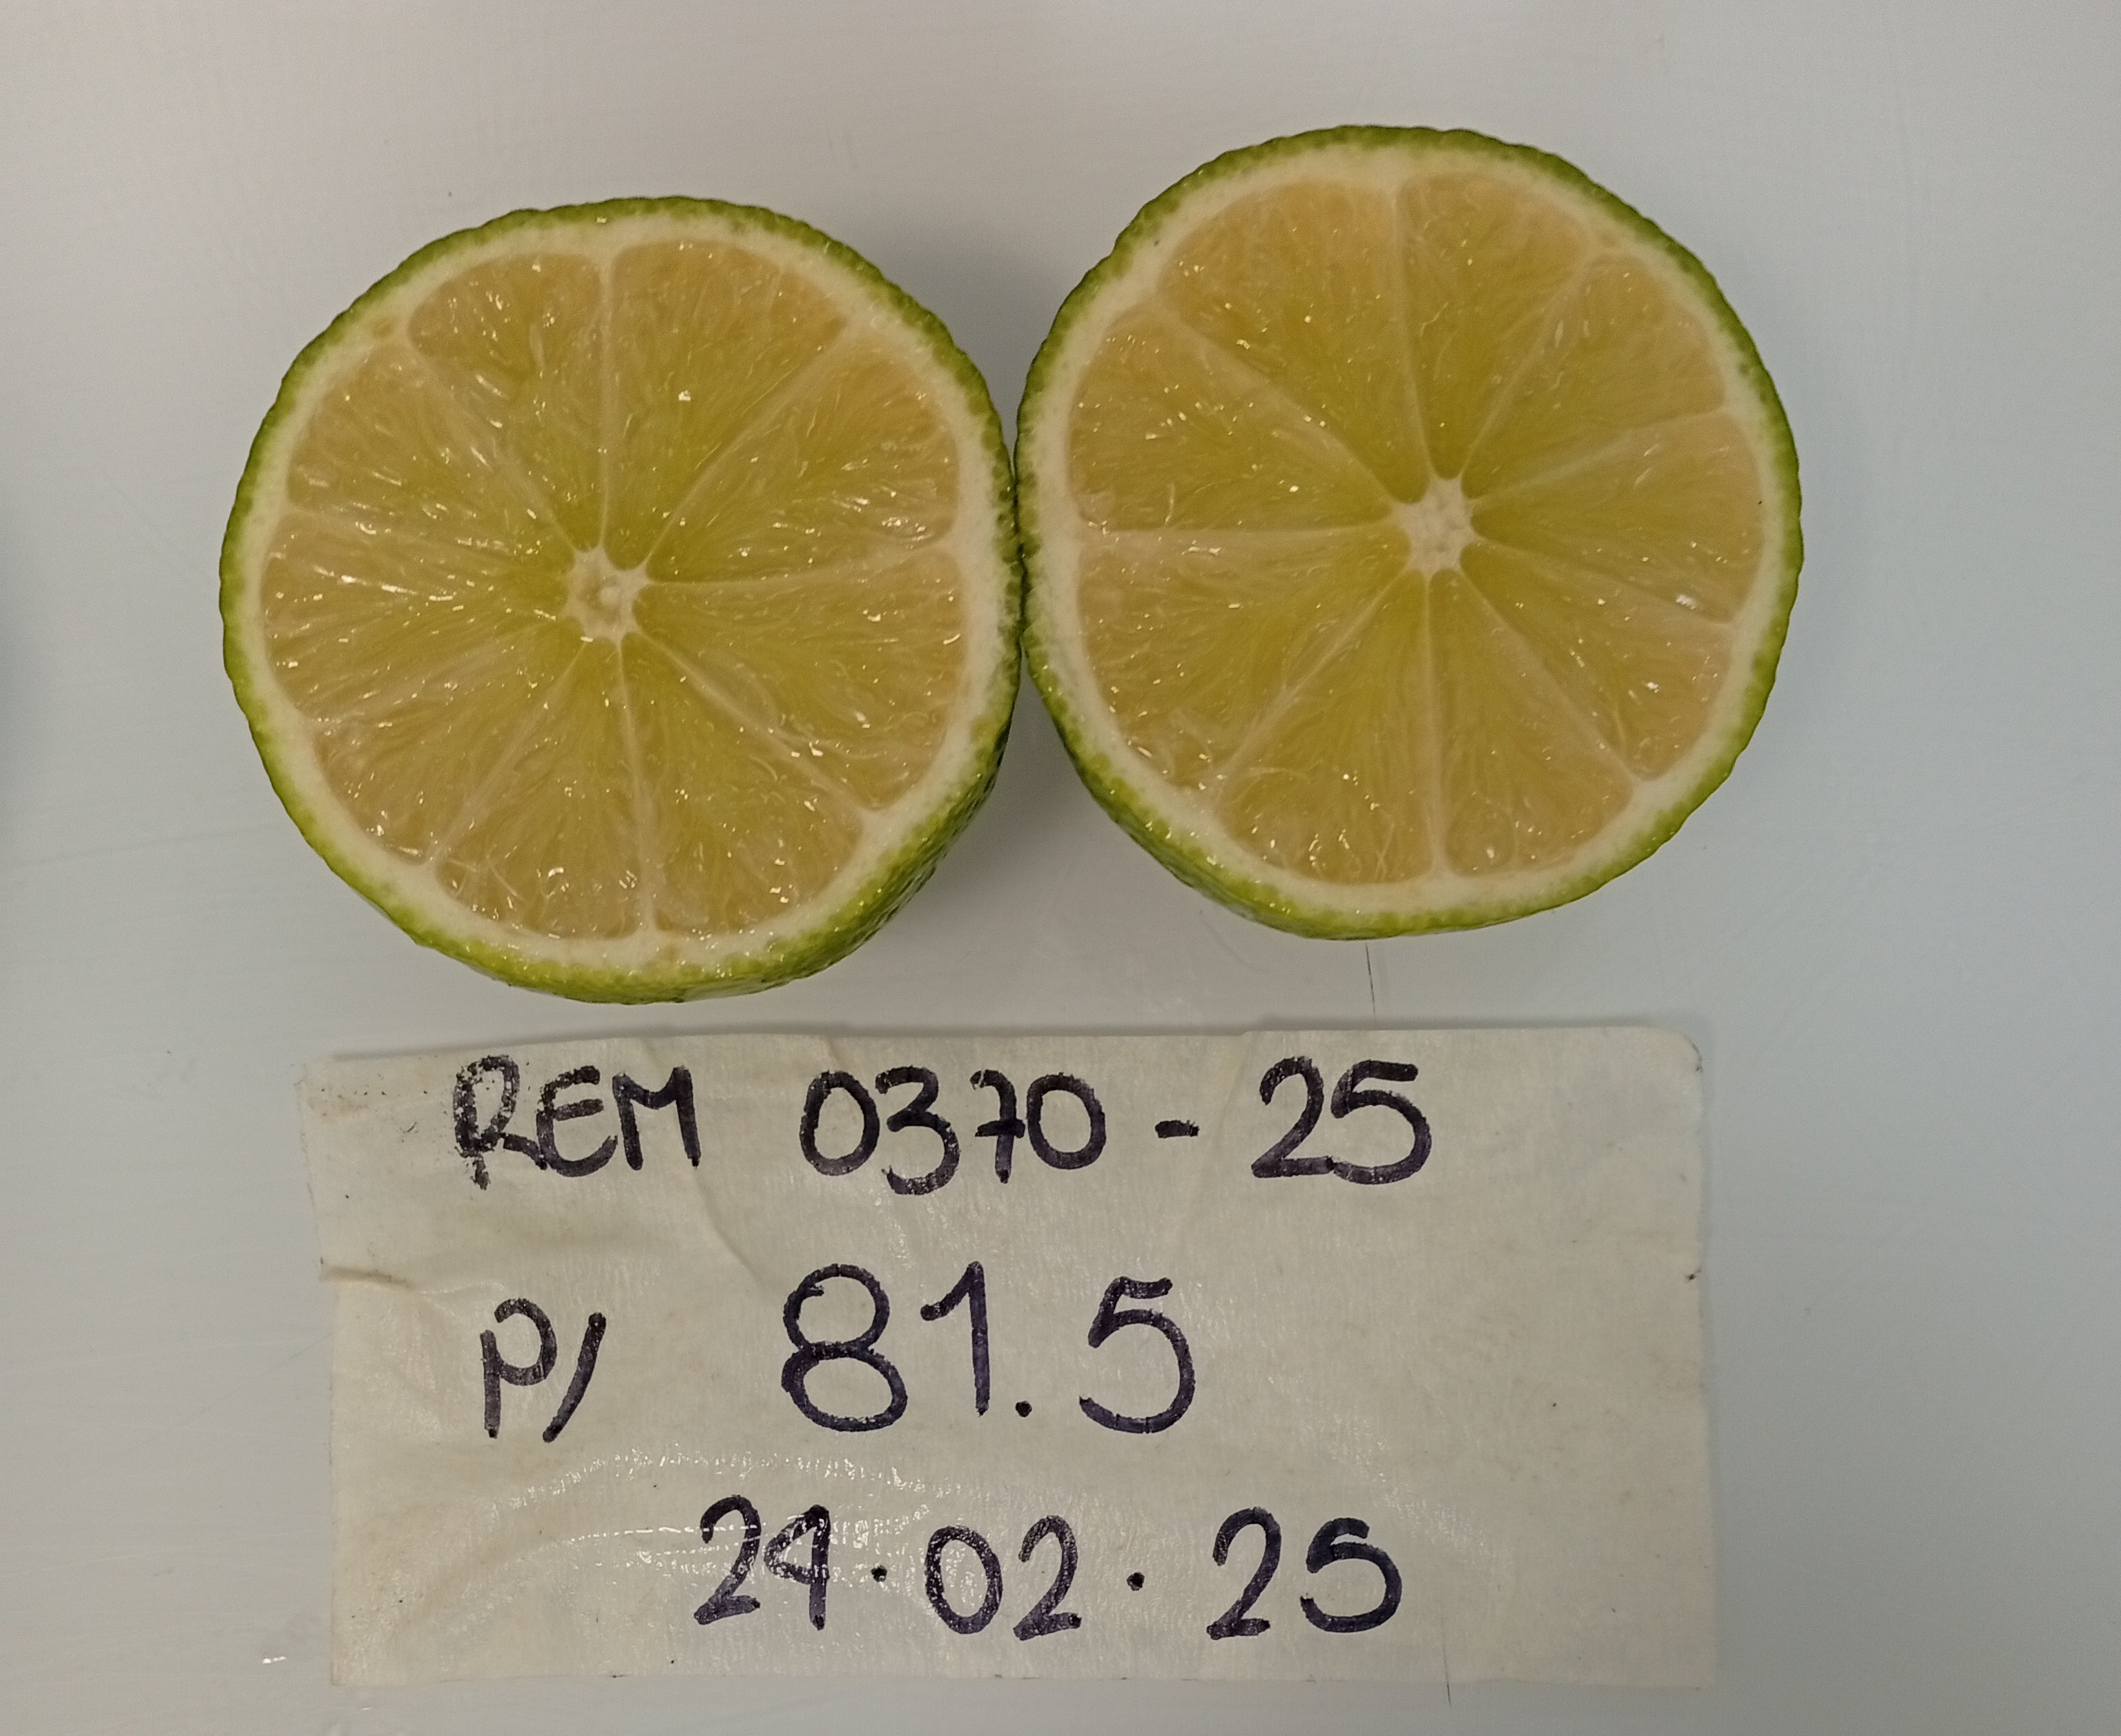 REM 0370 - 25
P/ 81.5
24.02.25